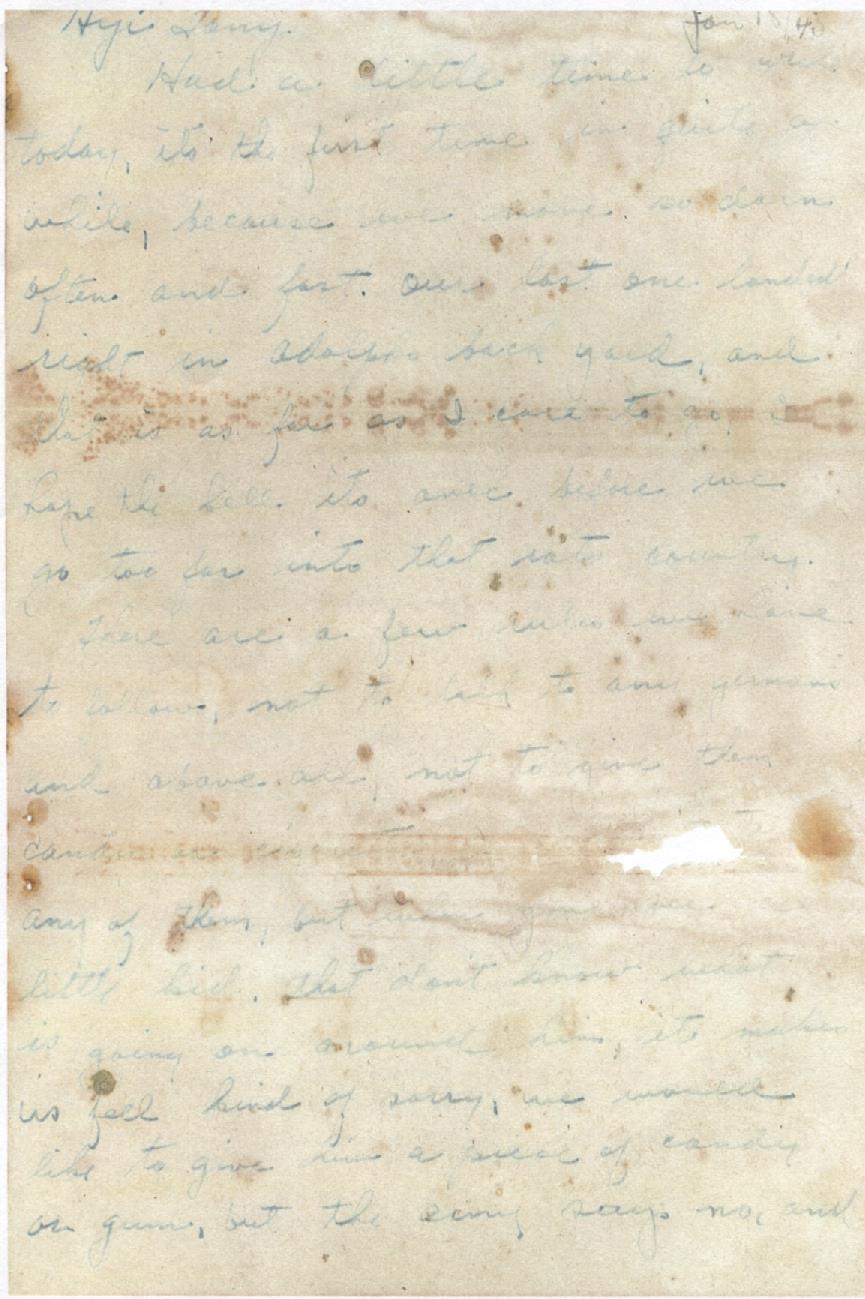 Hyi Tony.
Jan 18/45
Had a little time to write
today, its the first time in quite a
while, because we move so darn
often and fast. Our last one landed
right in adolphs back yard, and
that is as far as I care to go, I
hope the hell its over before we
go too far into that rats country.
There are a few rules we have
to follow, not to talk to any germans
and above all, not to give them
candy or cigarets
any of them, but when you see a
little kid, that don't know what
is going on around him, it makes
us fell kind of sorry, we would
like to give him a piece of candy
or gum, but the army says no, and